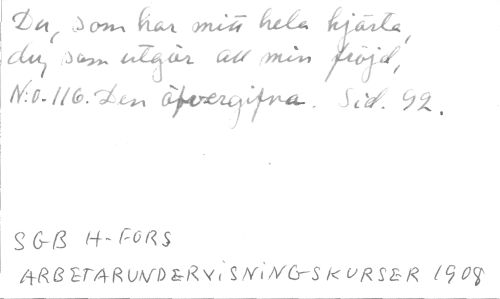 Du, som har mitt hela hjärta,
du, som utgör all min fröjd,
N:o. 116. Den öfvergifna. Sid. 92.
SGB H-FORS
ARBETARUNDERVISNINGSKURSER 1908